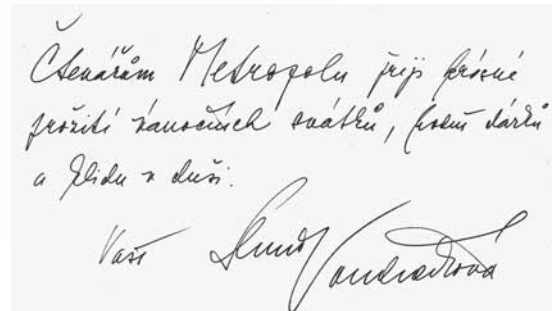 Čtenářům Metropolu přeji krásné
prožití vánočních svátků, hodně dárků
a klidu v duši.
Vaše Vondráčková